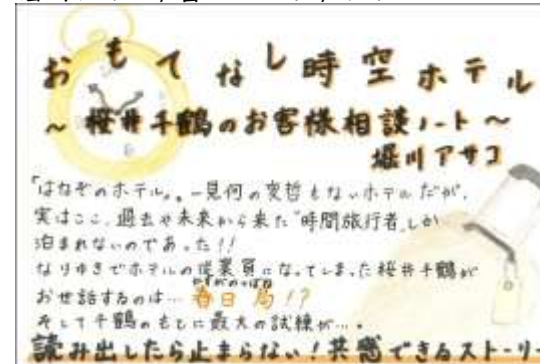 おもてなし時空ホテル
～桜井千鶴のお客様相談ノート～
堀川アサコ
「はなぞのホテル」。一見何の変哲もないホテルだが、
実はここ、過去や未来から来た"時間旅行者"しか
泊まれないのであった!!
なりゆきでホテルの従業員になってしまった桜井千鶴が
かすがのつぼね
お世話するのは…春日局!?
そして千鶴のもとに最大の試練が…。
読み出したら止まらない!共感できるストーリー